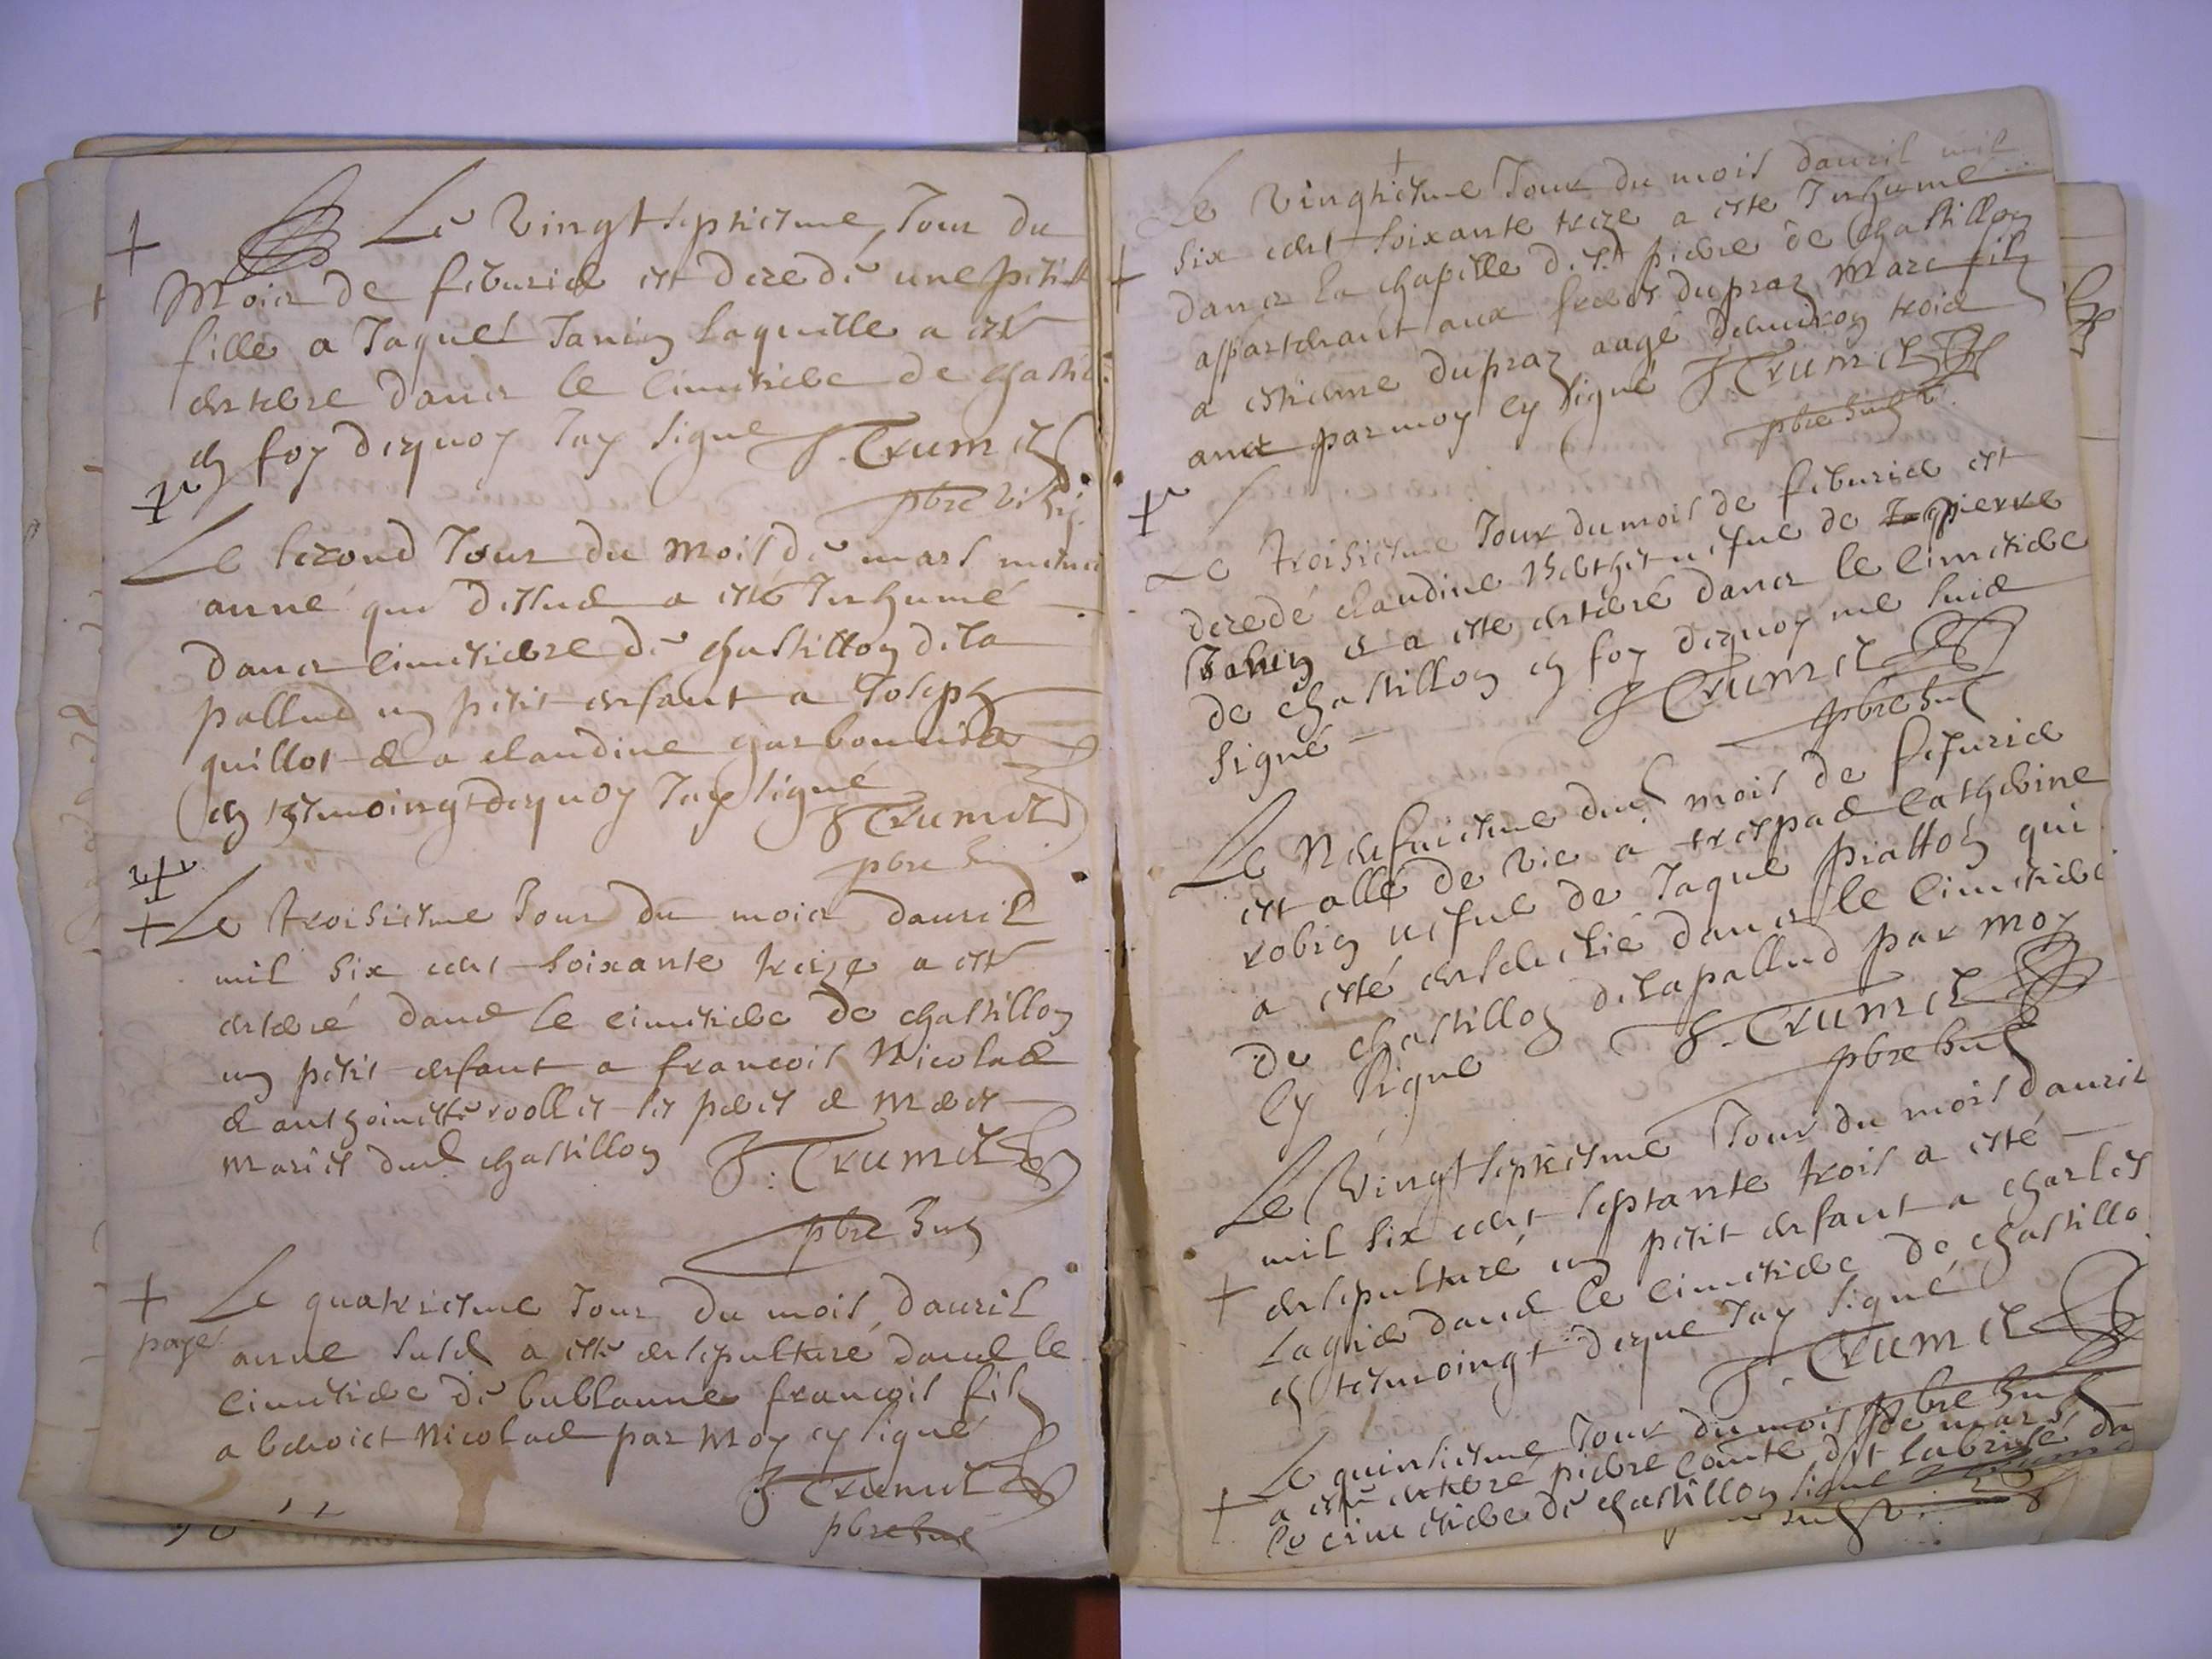 Le Vingt septiesme Jour du
Mois de feburier est decedé une petitte
fille a Jaques Janin laquelle a esté
enterre dans le cimetiere de chasti
en foy dequoy Jay signe J. Trumet
pbre
Le second Jour du Mois de mars mesme
anné que dessus a esté Inhumé
dans cimetiere de chastillon dela
pallud un petit enfant a Joseph
quillot & a claudine charbonnier
en tesmoingt dequoy Jay signé
J Trumet
pbre
Le troisiesme Jour du mois dauril
mil six cent soixante treize a esté
enterré dans le cimetiere de chastillon
un petit enfant a francois Nicolas
& anthoinette rollet ses peres & Meres
Mariés dud chastillon J. Trumet
pbre
Le quatriesme Jour du mois dauril
paye
anne susd a esté ensepulturé dans le
cimetiere de bublanne francois fils
a benoict Nicolas par Moy cy signé
J. Trumet
pbre
Le vingtiesme Jour du mois dauril mil
six cent soixante treze a este Inhumé
dans la chapelle de St piere de Chastillon
appartenant aux freres dupraz Marc fils
a estienne dupraz aagé denuiron trois
ans par moy cy signé J Trumet
pbre
Le troisiesme Jour du mois de feburier est
decedé claudine Berthet uesue de pierre
Janin & a este enterré dans le cimetiere
de chastillon en foy dequoy me suis
signé J Trumet
pbre
Le Neufuiesme dud mois de feburier
est allé de vie a trespas catherine
robin uesue de Jaque piatton qui
a esté enseuelié dans le cimetiere
de chastillon dela pallud par moy
cy signe J. Trumet
pbre
Le Vingt septiesme Jour du mois dauril
mil six cent septante trois a esté
ensepulturé un petit enfant a charles
Lagnier dans le cimetiere de chastillo
en tesmoingt deque Jay signé
J. Trumet
pbre
Le quinsiesme Jour du mois de mars
a esté enterré piere comte dit labrise da
le cimetiere de chastillon signe